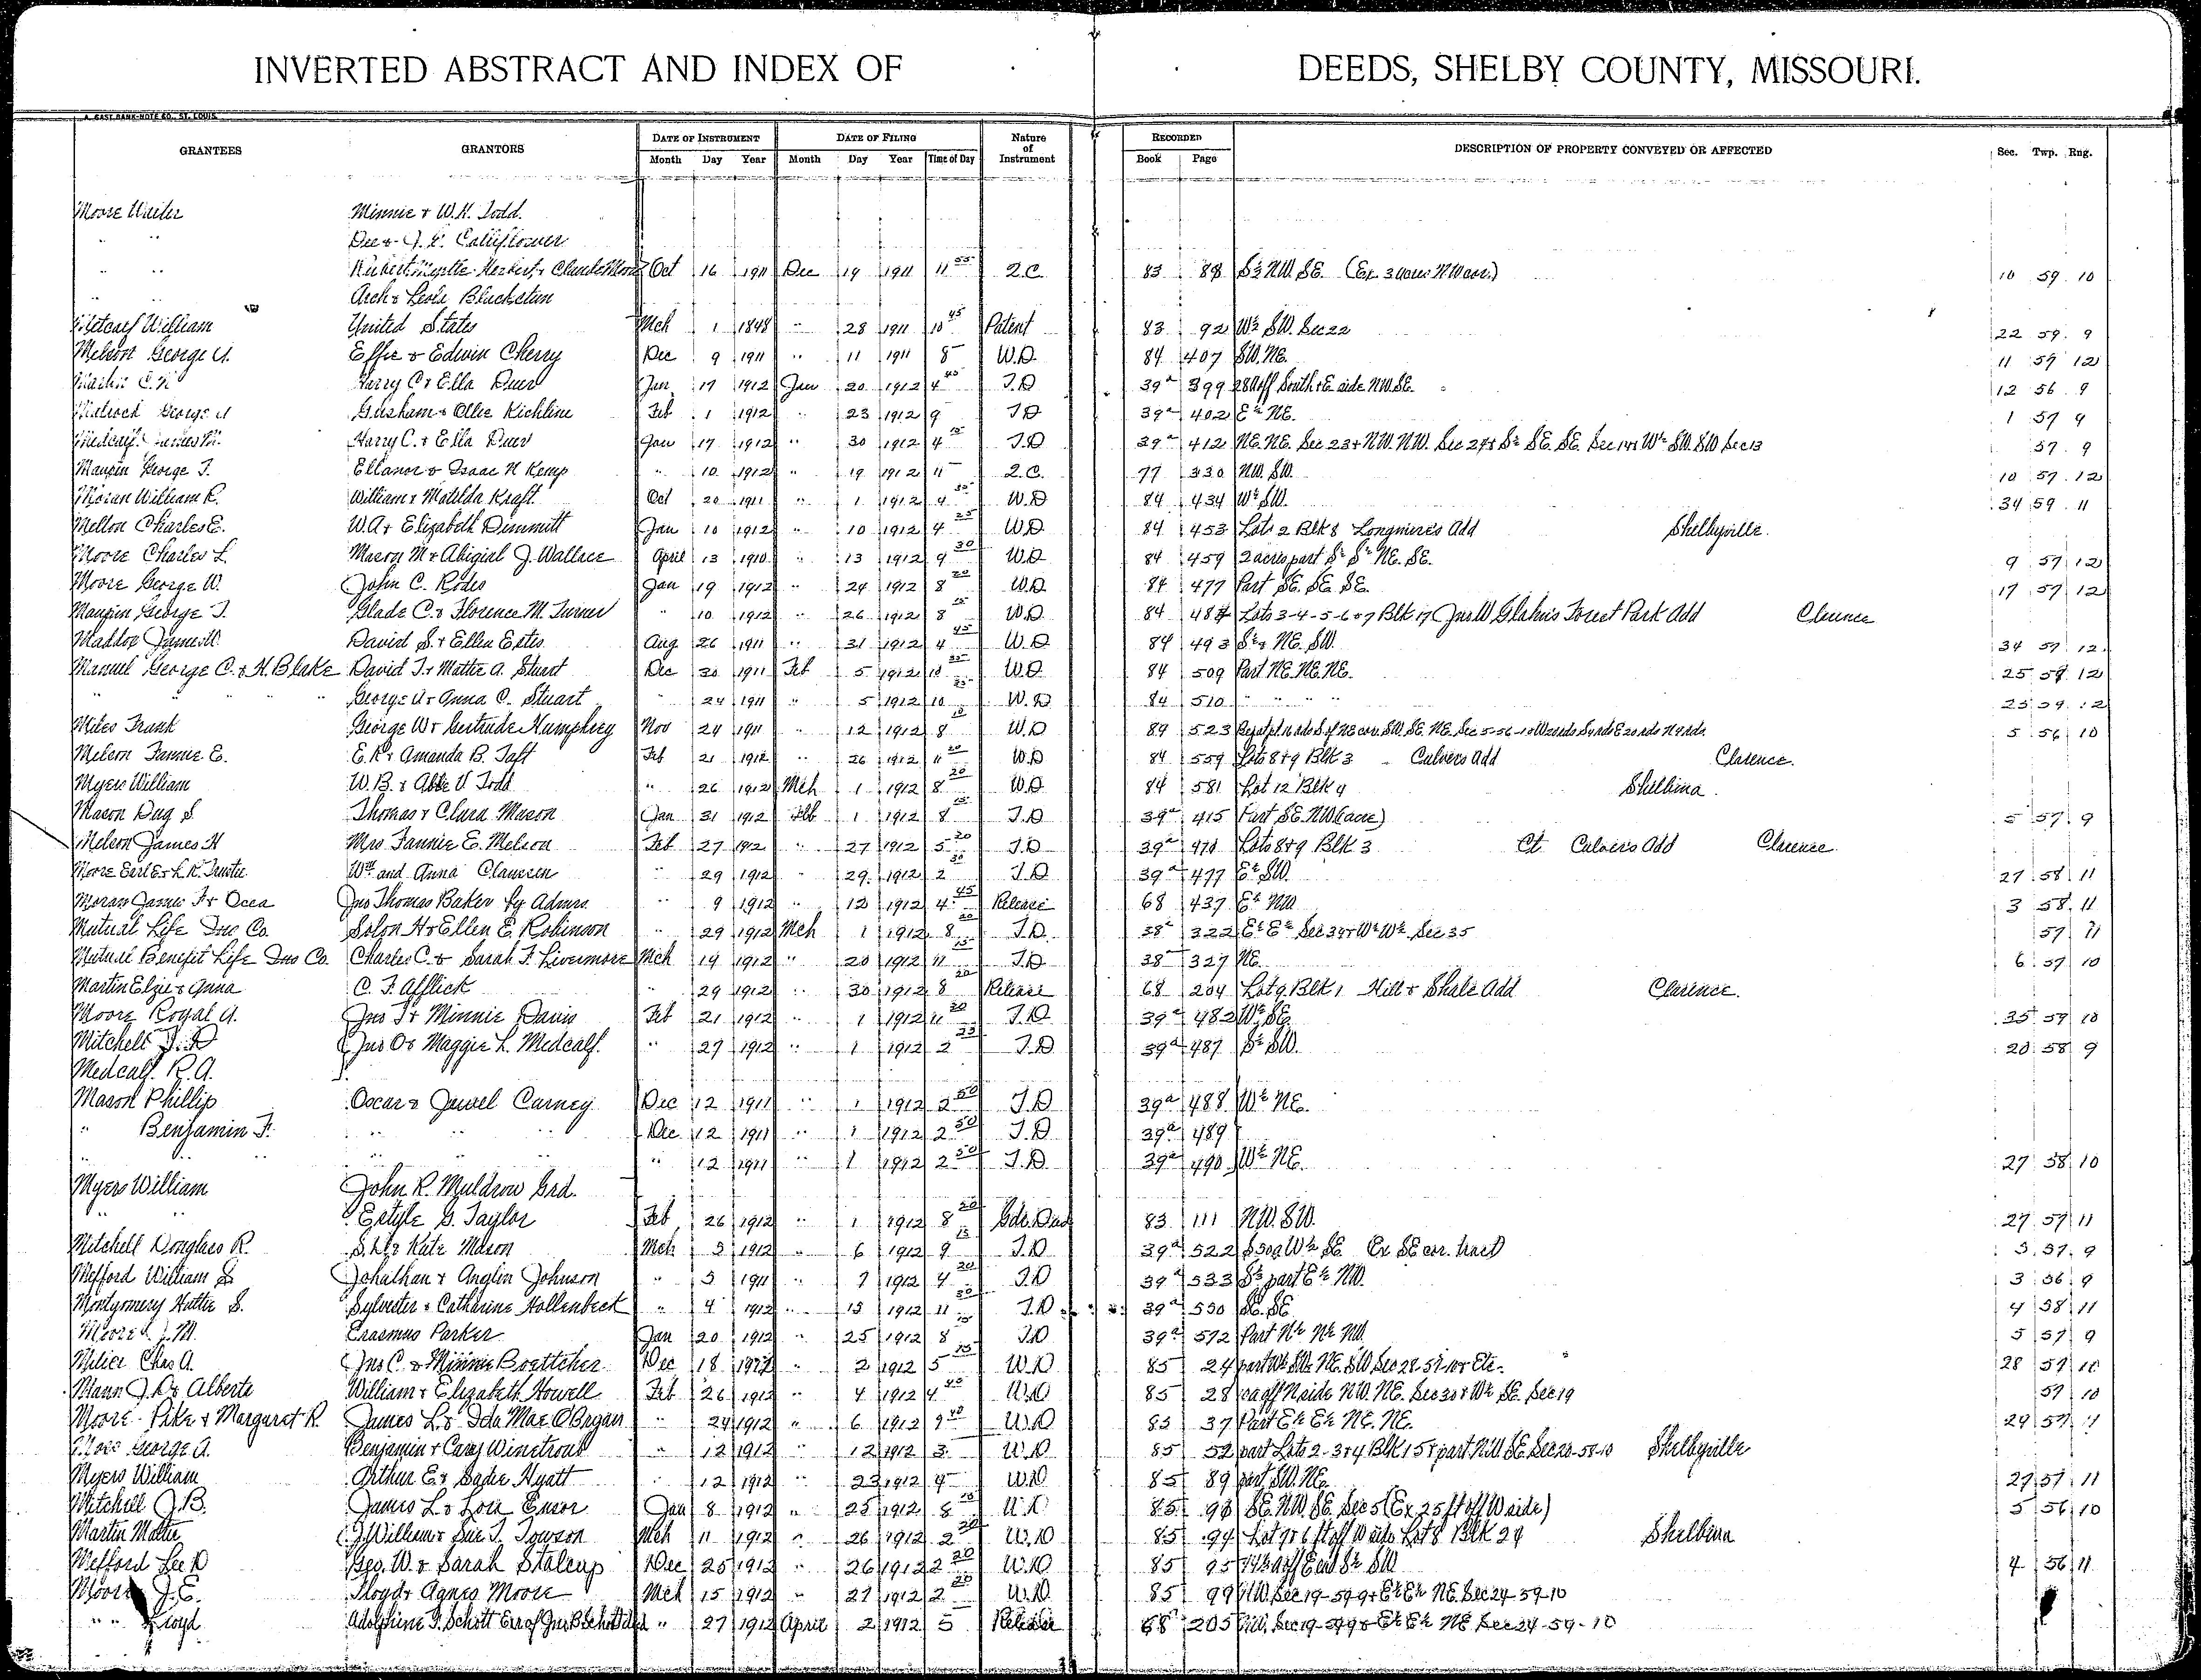 INVERTED ABSTRACT AND INDEX OF DEEDS, SHELBY COUNTY, MISSOURI.
A. GAST BANK-NOTE CO., ST. LOUIS.
GRANTEES GRANTORS DATE OF INSTRUMENT DATE OF FILING Nature of Instrument RECORDED DESCRIPTION OF PROPERTY CONVEYED OR AFFECTED Sec. Twp. Rng.
Month Day Year Month Day Year Time of Day Book Page
Moore Minnie & W.H. Todd.
" " Dee &
" " Myrtle Herbert & Claude Moore Oct 16 1911 Dec 19 1911 11 55 Q.C. 83 88 S½ NW SE (Ex 3 acres NW cor.) 10 59 10
" Arch &
William United States Mch 1 1848 " 28 1911 10 45 Patent 83 92 W½ SW. Sec 22 22 59 9
Melson George A. Effie & Edwin Cherry Dec 9 1911 " 11 1911 8 W.D. 84 407 SW. NE. 11 59 12
Harry C & Ella Duer Jan 17 1912 Jan 20 1912 4 45 T.D 39a 399 28A off South & E side NW. SE. 12 56 9
George & Ollie Richline Feb 1 1912 " 23 1912 9 T.D 39a 402 E½ NE. 1 57 9
Harry C. & Ella Duer Jan 17 1912 " 30 1912 4 15 T.D 39a 412 NE. NE. Sec 23 & NW. NW. Sec 24 & S½ SE. SE. Sec 14 & W½ SW. SW Sec 13 57 9
Maupin George T. Ellanor & Isaac N Kemp " 10 1912 " 19 1912 11 Q.C. 77 330 NW. SW. 10 57 12
Moran William R. William & Matilda Kraft Oct 20 1911 " 1 1912 4 30 W.D 84 434 W½ SW. 34 59 11
Melton Charles E. W.A & Elizabeth Dimmitt Jan 10 1912 " 10 1912 4 25 W.D 84 453 Lots 2 Blk 8 Longmire's Add Shelbyville.
Moore Charles L. Macon M & Abigial J. Wallace April 13 1910 " 13 1912 9 30 W.D 84 459 2 acres part S½ S½ NE. SE. 9 57 12
Moore George W. John C. Rodes Jan 19 1912 " 24 1912 8 20 W.D 84 477 Part SE. SE SE. 17 57 12
Maupin George T. Glade C. & Florence M. Turner " 10 1912 " 26 1912 8 15 W.D 84 487 Lots 3-4-5-6 & 7 Blk 17 Jno W Glahn's Forest Park Add Clarence
Maddox James W. David S. & Ellen Estes Aug 26 1911 " 31 1912 4 45 W.D 84 493 NE. SW. 34 57 12
Manuel George C. & H. Blake David T. & Mattie A. Stuart Dec 30 1911 Feb 5 1912 10 25 W.D 84 509 Part NE. NE. NE. 25 59 12
" " George A & Anna C. Stuart " 24 1911 5 1912 10 25 W.D 84 510 " " " " 25 59 12
Miles Frank George W & Gertrude Humphrey Nov 24 1911 " 12 1912 8 10 W.D 89 523 5 56 10
Melson Fannie E. E.R & Amanda B. Taft Feb 21 1912 " 26 1912 11 20 W.D 84 559 Lots 8 & 9 Blk 3 Culvers Add Clarence.
Myers William W.B. & Abbe V Todd " 26 1912 Mch 1 1912 8 20 W.D 84 581 Lot 12 Blk 4 Shelbina.
Mason Dag S. Thomas & Clara Mason Jan 31 1912 Feb 1 1912 8 15 T.D 39a 415 Part SE. NW (acre) 5 57 9
Melson James H Mrs Fannie E. Melson Feb 27 1912 " 27 1912 5 20 T.D 39a 471 Lots 8 & 9 Blk 3 Ct Culver's Add Clarence
Moore Earl & L.R. Trustee Wm and Anna Clawsen " 29 1912 " 29 1912 2 30 T.D 39a 477 E½ SW. 27 58 11
Moran James F & Ocea Jno Thomas Baker by Admrs " 9 1912 " 12 1912 4 45 Release 68 437 E½ NW 3 58 11
Mutual Life Ins Co. Solon H & Ellen E. Robinson " 29 1912 Mch 1 1912 8 20 T.D. 38a 322 E½ E½ Sec 34 & W½ W½ Sec 35 57 11
Mutual Benefit Life Ins Co. Charles C. & Sarah F. Livermore Mch 19 1912 " 20 1912 11 15 T.D 38 327 NE 6 57 10
Martin Elzie & Anna C. F. Afflick " 29 1912 " 30 1912 8 20 Release 68 204 Lot 9 Blk 1 Hill & Shale Add Clarence.
Moore Royal A. Jno T & Minnie Davis Feb 21 1912 " 1 1912 11 20 T.D 39a 482 W½ SE. 35 59 10
Mitchell J. D Jno O & Maggie L. Medcalf. " 27 1912 " 1 1912 2 25 T.D 39a 487 S½ SW. 20 58 9
Medcalf R.A.
Mason Phillip Oscar & Jewel Carney Dec 12 1911 " 1 1912 2 50 T.D 39a 488 W½ NE.
" Benjamin F. " " " Dec 12 1911 " 1 1912 2 50 T.D 39a 489
" " " " " " 12 1911 " 1 1912 2 50 T.D 39a 490 W½ NE. 27 58 10
Myers William John R. Muldrow Grd.
" " Estyle G. Taylor Feb 26 1912 " 1 1912 8 20 Gdn. Deed 83 111 NW. SW. 27 57 11
Mitchell Douglass R. S. L. & Kate Mason Mch 5 1912 " 6 1912 9 15 T.D 39a 522 S 50a W½ SE Ex SE cor. tract 3 57 9
Mefford William S Johathan & Anglin Johnson " 5 1911 " 7 1912 4 20 T.D 39a 533 S½ part E½ NW. 3 56 9
Montgomery Hattie S. Sylvester & Catharine Hollenbeck " 4 1912 " 13 1912 11 30 T.D 39a 550 SE. SE 4 58 11
Moore J. M. Erasmus Parker Jan 20 1912 " 25 1912 8 15 T.D 39a 572 Part N½ N½ NW. 5 57 9
Chas A. Jno C. & Minnie Boettcher Dec 18 1911 " 2 1912 5 15 W.D 85 24 part W½ SW NE. SW Sec 28-57-10 & Etc. 28 57 10
Mann J. D & Alberta William & Elizabeth Howell Feb 26 1912 " 4 1912 4 40 W.D 85 28 off N side NW. NE. Sec 30 & W½ SE. Sec 19 57 10
Moore Pike & Margaret R. James L. & Ida Mae O'Bryan " 24 1912 " 6 1912 9 40 W.D 85 37 Part E½ E½ NE. NE. 29 57 11
George A. Benjamin & Winetroub " 12 1912 " 12 1912 3 W.D 85 52 part Lots 2-3 & 4 Blk 15 & part NW. SE. Sec 20-58-10 Shelbyville
Myers William Arthur E. & Sadie Hyatt " 12 1912 " 23 1912 4 W.D 85 89 part SW. NE. 27 57 11
Mitchell J. B. James L. & Lois Ensor Jan 8 1912 " 25 1912 8 W.D 85 93 SE. NW. SE. Sec 5 (Ex 25 ft off W side) 5 56 10
Martin Mattie J William & Sue T. Towson Mch 11 1912 " 26 1912 2 20 W.D 85 94 Lot 7 & 6 ft off W side Lot 8 Blk 24 Shelbina
Mefford Lee D Geo. W. & Sarah Stalcup Dec 25 1912 " 26 1912 2 20 W.D 85 95 off End S½ SW 4 56 11
Moore J. E. Lloyd & Agnes Moore Mch 15 1912 " 27 1912 2 20 W.D 85 99 NW. Sec 19-59-9 & E½ E½ NE. Sec 24-59-10
" " Lloyd Adolphine F. Schott of Jno B Schott " 27 1912 April 2 1912 5 Release 68 205 NW. Sec 19-59-9 & E½ E½ NE Sec 24-59-10